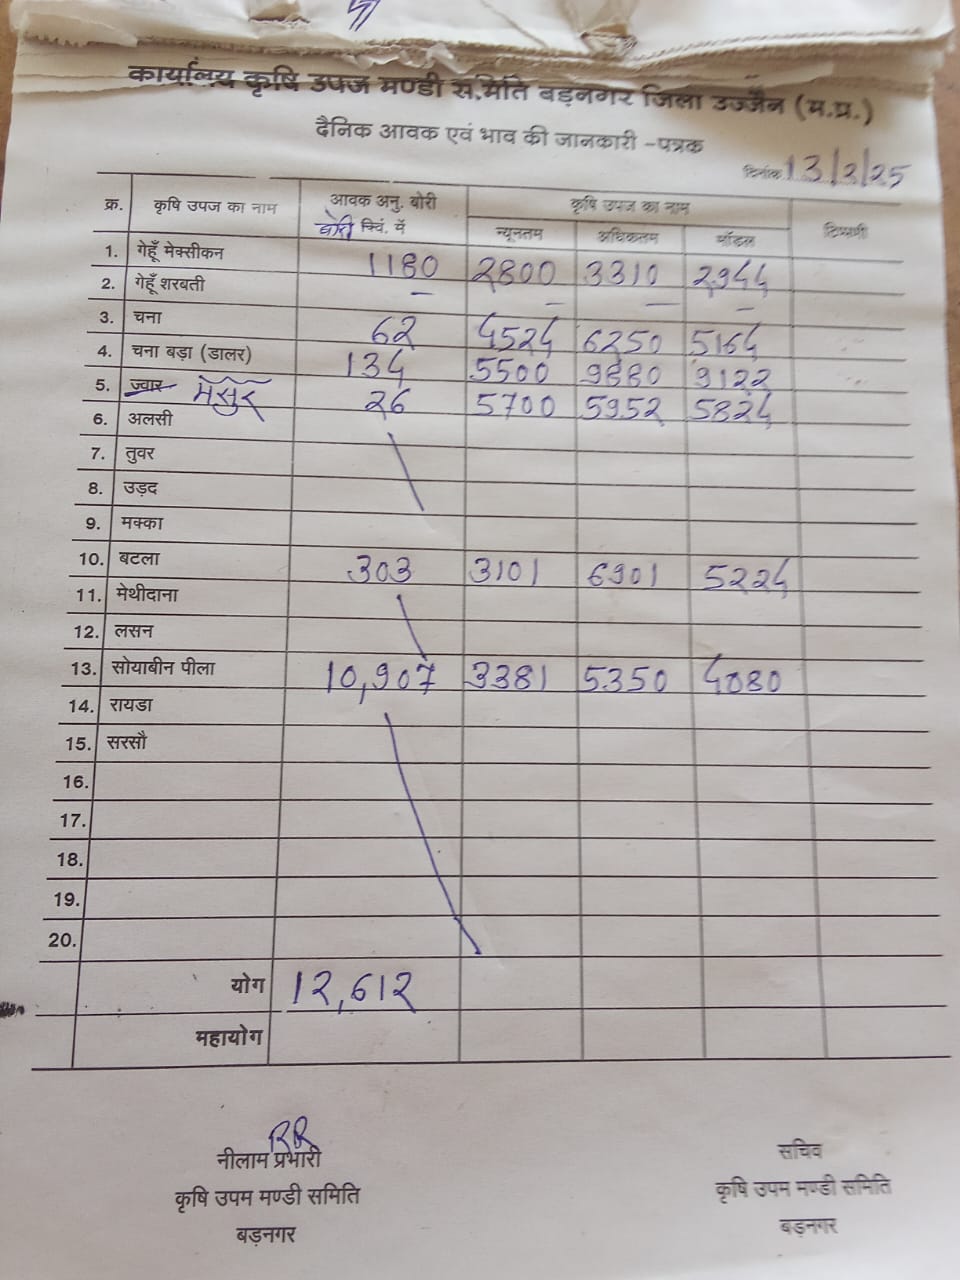 कार्यालय कृषि उपज मण्डी समिति बड़नगर जिला उज्जैन (म.प्र.)
दैनिक आवक एवं भाव की जानकारी -पत्रक
दिनांक 13/3/25
क्र. कृषि उपज का नाम आवक अनु. बोरी कृषि उपज का नाम टिप्पणी
बोरी क्विं. में न्यूनतम अधिकतम मॉडल
1. गेहूँ मेक्सीकन 1180 2800 3310 2944
2. गेहूँ शरबती — — — —
3. चना 62 4524 6250 5164
4. चना बड़ा (डालर) 134 5500 9880 9122
5. ज्वार मसुर 26 5700 5952 5824
6. अलसी
7. तुवर
8. उड़द
9. मक्का
10. बटला 303 3101 6901 5224
11. मेथीदाना
12. लसन
13. सोयाबीन पीला 10,907 3381 5350 4080
14. रायडा
15. सरसौ
16.
17.
18.
19.
20.
योग 12,612
महायोग
RR
नीलाम प्रभारी
कृषि उपम मण्डी समिति
बड़नगर
सचिव
कृषि उपम मण्डी समिति
बड़नगर